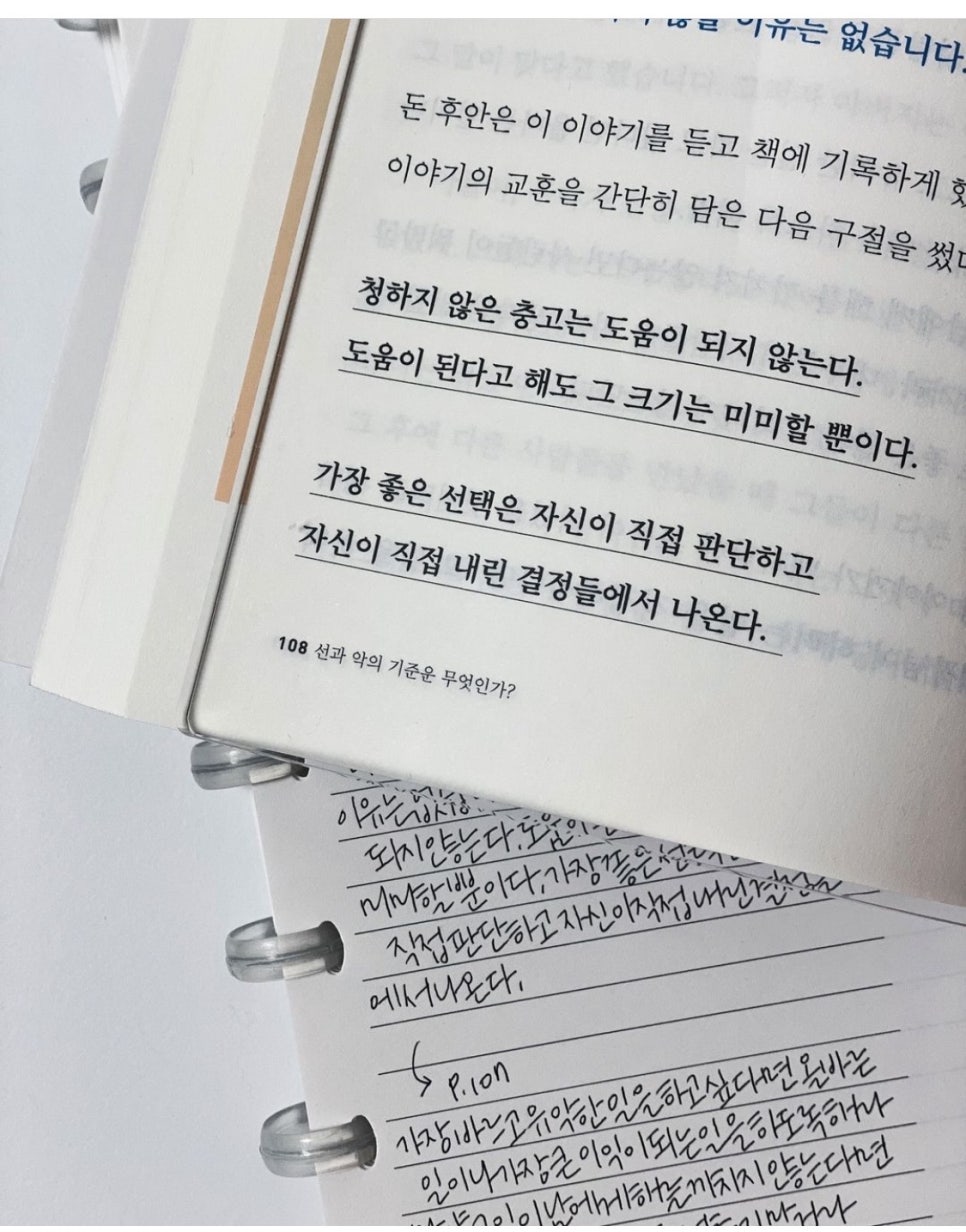 않을 이유는 없습니다.
돈 후안은 이 이야기를 듣고 책에 기록하게
이야기의 교훈을 간단히 담은 다음 구절을
청하지 않은 충고는 도움이 되지 않는다.
도움이 된다고 해도 그 크기는 미미할 뿐이다.
가장 좋은 선택은 자신이 직접 판단하고
자신이 직접 내린 결정들에서 나온다.
108 선과 악의 기준은 무엇인가?
이유는
되지 않는다. 도움이
미미할 뿐이다. 가장 좋은
직접 판단하고 자신이 직접 내린
에서 나온다.
p.107
가장 바르고 유익한 일을 하고 싶다면 올바른
일이나 가장 큰 이익이 되는 일을 하도록 하거나
남에게 해를 끼치지 않는다면